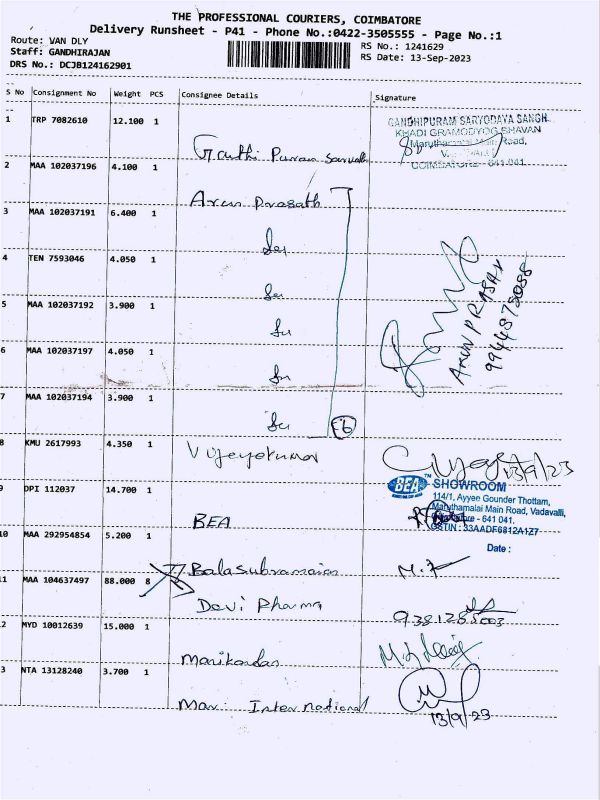 THE PROFESSIONAL COURIERS, COIMBATORE
Delivery Runsheet - P41 - Phone No.:0422-3505555 - Page No.:1
Route: VAN DLY
Staff: GANDHIRAJAN
DRS No.: DCJB124162901
RS No.: 1241629
RS Date: 13-Sep-2023
S No Consignment No Weight PCS Consignee Details Signature
1 TRP 7082610 12.100 1
GANDHIPURAM SARVODAYA SANGH
KHADI GRAMODYOG BHAVAN
Maruthamalai Main Road,
COIMBATORE - 641 041.
2 MAA 102037196 4.100 1
Arun Prasath
3 MAA 102037191 6.400 1
4 TEN 7593046 4.050 1
ARUN PRASAY
5 MAA 102037192 3.900 1
6 MAA 102037197 4.050 1
7 MAA 102037194 3.900 1
8 KMU 2617993 4.350 1
Vijeyakumar
13/9/23
9 DPI 112037 14.700 1
BEA
BEA TM SHOWROOM
114/1, Ayyee Gounder Thottam,
Maruthamalai Main Road, Vadavalli,
641 041.
GSTIN : 33AADF6812A1Z7
Date :
10 MAA 292954854 5.200 1
Balasubramaian
11 MAA 104637497 88.000 8
Devi Pharma
2 MYD 10012639 15.000 1
Manikandan
3 NTA 13128240 3.700 1
Mav. International
13/9/23